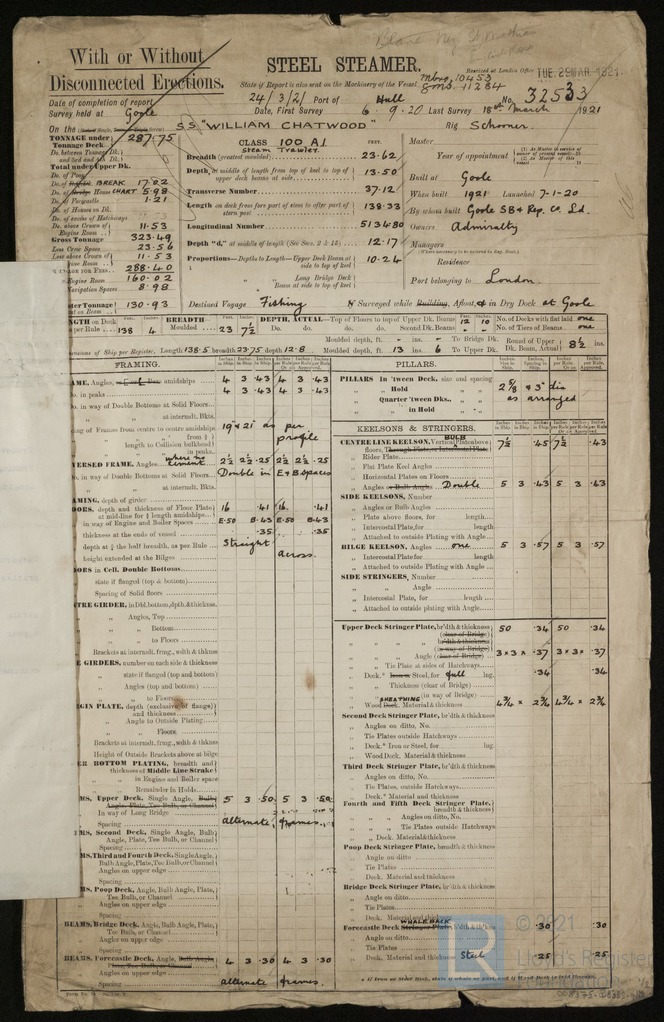 With or Without
Disconnected Erections.
STEEL STEAMER.
Received at London Office TUE. 29 MAR. 1921
State if Report is also sent on the Machinery of the Vessel
Mbro 10453
No. 32533
Date of completion of report 24/3/21 Port of Hull
Survey held at Goole Date, First Survey 6 . 9 . 20 Last Survey 18th March 1921
On the S.S. "WILLIAM CHATWOOD" Rig Schooner.
TONNAGE under Tonnage Deck 287.75
Do. between Tonnage Dk. and
Total under Upper Dk.
Do. of Poop
Do. of BREAK 17.02
Do. of House CHART 5.98
Do. of Forecastle 1.21
Do. of Houses on Dk.
Do. of excess of Hatchways
Do. above Crown of Engine Room 11.53
Gross Tonnage 323.49
Less Crew Space 23.56
Less above Crown of Engine Room 11.53
288.40
Engine Room 160.02
Navigation Spaces 8.98
130.93
CLASS 100 A1
Steam Trawler.
FEET.
Breadth (greatest moulded) 23.62
Depth, at middle of length from top of keel to top of upper deck beams at side 13.50
Transverse Number 37.12
Length on deck from fore part of stem to after part of stern post 138.33
Longitudinal Number 5134.80
Depth "d," at middle of length (See Secs. 2 & 13) 12.17
Proportions—Depths to Length—Upper Deck Beam at side to top of keel 10.24
" " Long Bridge Deck Beam at side to top of keel
Destined Voyage Fishing
Master
Year of appointment
Built at Goole
When built 1921 Launched 7-1-20
By whom built Goole SB & Rep. Co. Ld.
Owners Admiralty
Managers
Residence
Port belonging to London.
If Surveyed while Building, Afloat, or in Dry Dock at Goole
138 4 BREADTH— Moulded 23 7½
DEPTH, ACTUAL—Top of Floors to top of Upper Dk. Beams 12 10
Do. do. do. Second Dk. Beams
No. of Decks with flat laid one
No. of Tiers of Beams one
Moulded depth, ft. ins. To Bridge Dk.
Round of Upper Dk. Beam, Actual 8½ ins.
Dimensions of Ship per Register, Length 138.5 breadth 23.75 depth 12.8
Moulded depth, ft. 13 ins. 6 To Upper Dk.
FRAMING.
FRAME, Angles, amidships 4 3 .43 4 3 .43
Do. in peaks 4 3 .43 4 3 .43
Do. in way of Double Bottoms at Solid Floors
" " at intermdt. Bkts.
Spacing of Frames from centre to centre amidships 19" & 21" as per profile
length to Collision bulkhead
in peaks
REVERSED FRAME, Angles where no cement 2½ 2½ .25 2½ 2½ .25
Do. in way of Double Bottoms at Solid Floors Double in E & B spaces
" " at intermdt. Bkts.
FRAMING, depth of girder
FLOORS, depth and thickness of Floor Plate at mid-line for ½ length amidships 16 .41 16 .41
in way of Engine and Boiler Spaces E.50 B.43 E.50 B.43
thickness at the ends of vessel .35 .35
depth at ¾ the half breadth, as per Rule Straight across.
height extended at the Bilges
FLOORS in Cell. Double Bottoms
state if flanged (top & bottom)
Spacing of Solid floors
CENTRE GIRDER, in Dbl. bottom, dpth. & thickness
" Angles, Top
" " Bottom
" " to Floors
Brackets at intermdt. frmg., wdth & thkns
SIDE GIRDERS, number on each side & thickness
state if flanged (top and bottom)
Angles (top and bottom)
" to Floors
MARGIN PLATE, depth (exclusive of flange) and thickness
Angle to Outside Plating
" Floors
Brackets at intermdt. frmg., wdth & thkns
Height of Outside Brackets above at bilge
INNER BOTTOM PLATING, breadth and thickness of Middle Line Strake
" in Engine and Boiler space
Remainder in Holds
BEAMS, Upper Deck, Single Angle, Bulb Angle, Plate, Tee Bulb, or Channel 5 3 .50 5 3 .50
In way of Long Bridge
Spacing alternate frames.
BEAMS, Second Deck, Single Angle, Bulb Angle, Plate, Tee Bulb, or Channel
Spacing
BEAMS, Third and Fourth Deck, Single Angle, Bulb Angle, Plate, Tee Bulb, or Channel
Angles on upper edge
Spacing
BEAMS, Poop Deck, Angle, Bulb Angle, Plate, Tee Bulb, or Channel
Angles on upper edge
Spacing
BEAMS, Bridge Deck, Angle, Bulb Angle, Plate, Tee Bulb, or Channel
Angles on upper edge
Spacing
BEAMS, Forecastle Deck, Angle, Bulb Angle, Plate, Tee Bulb, or Channel 4 3 .30 4 3 .30
Angles on upper edge
Spacing alternate frames.
PILLARS.
PILLARS In 'tween Deck, size and spacing
" Hold 2⅝ & 3" dia
Quarter 'tween Dks., as arranged
" in Hold
KEELSONS & STRINGERS.
CENTRE LINE KEELSON, Vertical Plate above floors, Through Plate, or Intercostal Plate BULB 7½ .45 7½ .43
" Rider Plate
" Flat Plate Keel Angles
" Horizontal Plates on Floors
" Angles or Bulb Angles Double 5 3 .43 5 3 .43
SIDE KEELSONS, Number
" Angles or Bulb Angles
" Plate above floors, for length
" Intercostal Plate, for length
" Attached to outside Plating with Angle
BILGE KEELSON, Angles one 5 3 .57 5 3 .57
" Intercostal Plate for length
" Attached to outside Plating with Angle
SIDE STRINGERS, Number
" Angle
" Intercostal Plate, for length
" Attached to outside plating with Angle
Upper Deck Stringer Plate, br'dth & thickness (clear of Bridge) 50 .34 50 .34
" " br'dth & thickness (in way of Bridge)
" Angle (clear of Bridge) 3 × 3 × .37 3 × 3 × .37
" Tie Plate at sides of Hatchways
" Deck.* Iron or Steel, for full lng. .34 .34
" Thickness (clear of Bridge)
" (in way of Bridge)
" Wood Deck. SHEATHING Material & thickness 4¾ × 2¾ 4¾ × 2¾
Second Deck Stringer Plate, br'dth & thickness
" Angles on ditto, No.
" Tie Plates outside Hatchways
" Deck.* Iron or Steel, for lng.
" Wood Deck. Material & thickness
Third Deck Stringer Plate, br'dth & thickness
" Angles on ditto, No.
" Tie Plates, outside Hatchways
" Deck.* Material and thickness
Fourth and Fifth Deck Stringer Plate, breadth & thickness
" " Angles on ditto, No.
" " Tie Plates outside Hatchways
" " Deck. Material & thickness
Poop Deck Stringer Plate, breadth & thickness
" Angle on ditto
" Tie Plates
" Deck. Material and thickness
Bridge Deck Stringer Plate, br'dth & thickness
" Angle on ditto
" Tie Plates
" Deck. Material and thickness
Forecastle Deck Stringer Plate, br'dth & th'kns WHALEBACK .30 .30
" Angle on ditto
" Tie Plates
" Deck. Material and thickness Steel .25 .25
© 2021
Lloyd's Register
Foundation